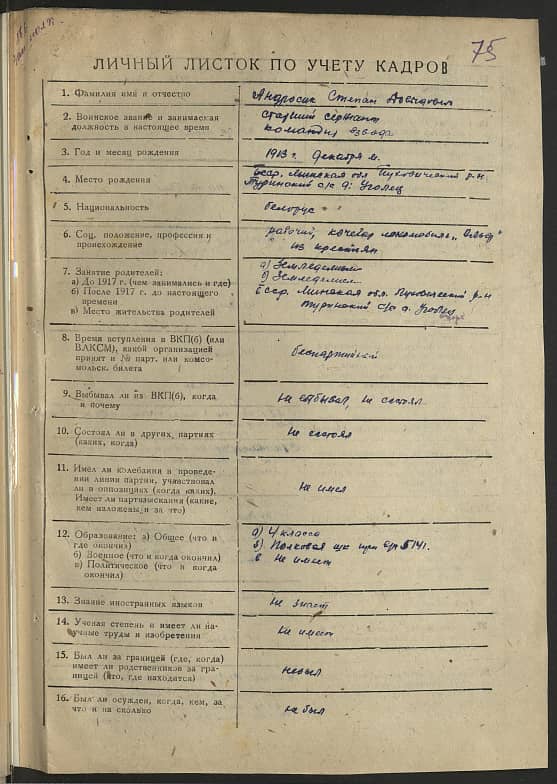 75
ЛИЧНЫЙ ЛИСТОК ПО УЧЕТУ КАДРОВ
1. Фамилия имя и отчество
Андросик Степан Давидович
2. Воинское звание и занимаемая
должность в настоящее время
старший сержант
командир взвода
3. Год и месяц рождения
1913 г. декабря м.
4. Место рождения
бсср. Минская обл. Пуховический р-н
Туринский с/с д. Уголец
5. Национальность
белорус
6. Соц. положение, профессия и
происхождение
рабочий, кочегар локомобиль
из крестьян
7. Занятие родителей:
а) До 1917 г. (чем занимались и где)
б) После 1917 г. до настоящего
времени
в) Место жительства родителей
а) Земледелием
б) Земледелием
бсср. Минская обл. Пуховический р-н
Туринский с/с д. Уголец
8. Время вступления в ВКП(б) (или
ВЛКСМ), какой организацией
принят и № парт. или комсо-
мольск. билета
беспартийный
9. Выбывал ли из ВКП(б), когда
и почему
не выбывал, не состоял
10. Состоял ли в других партиях
(каких, когда)
Не состоял
11. Имел ли колебания в проведе-
нии линии партии, участвовал
ли в оппозициях (когда каких).
Имеет ли партвзыскания (какие,
кем наложены и за что)
Не имел
12. Образование: а) Общее (что и
где окончил)
б) Военное (что и когда окончил)
в) Политическое (что и когда
окончил)
а) 4 класса
б) Полковая шк при
в Не имеет
13. Знание иностранных языков
Не знает
14. Ученая степень и имеет ли на-
учные труды и изобретения
Не имеет
15. Был ли за границей (где, когда)
имеет ли родственников за гра-
ницей (кто, где находятся)
небыл
16. Был ли осужден, когда, кем, за
что и на сколько
не был